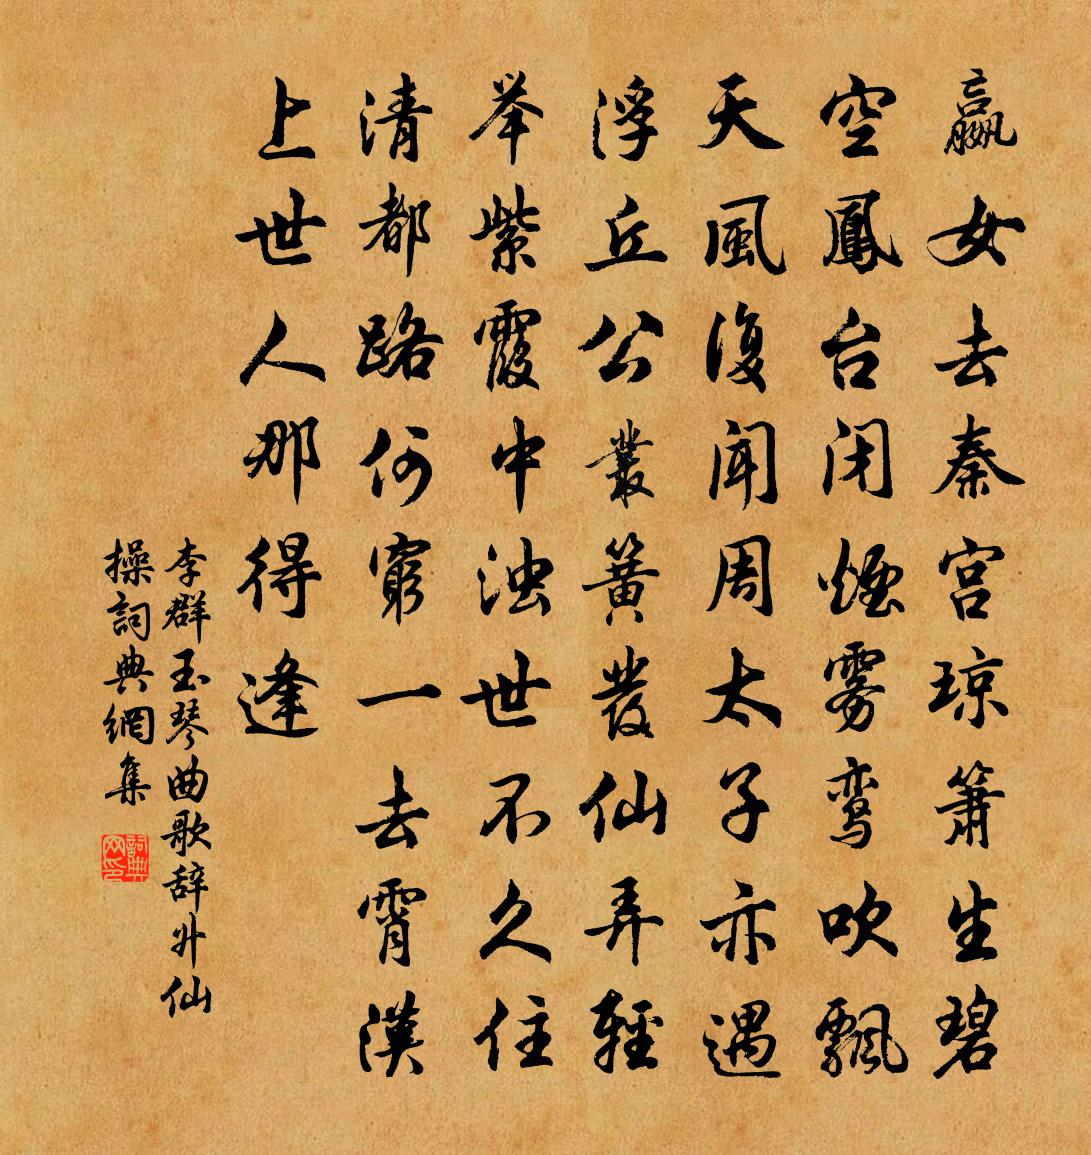 嬴女去秦宫琼簫生碧
空鳳台闭煙雾鸾吹飄
天風復闻周太子亦遇
浮丘公叢簧發仙弄輕
举紫霞中浊世不久住
清都路何窮一去霄漢
上世人那得逢
李群玉琴曲歌辞升仙
操詞典網集
詞典
网印